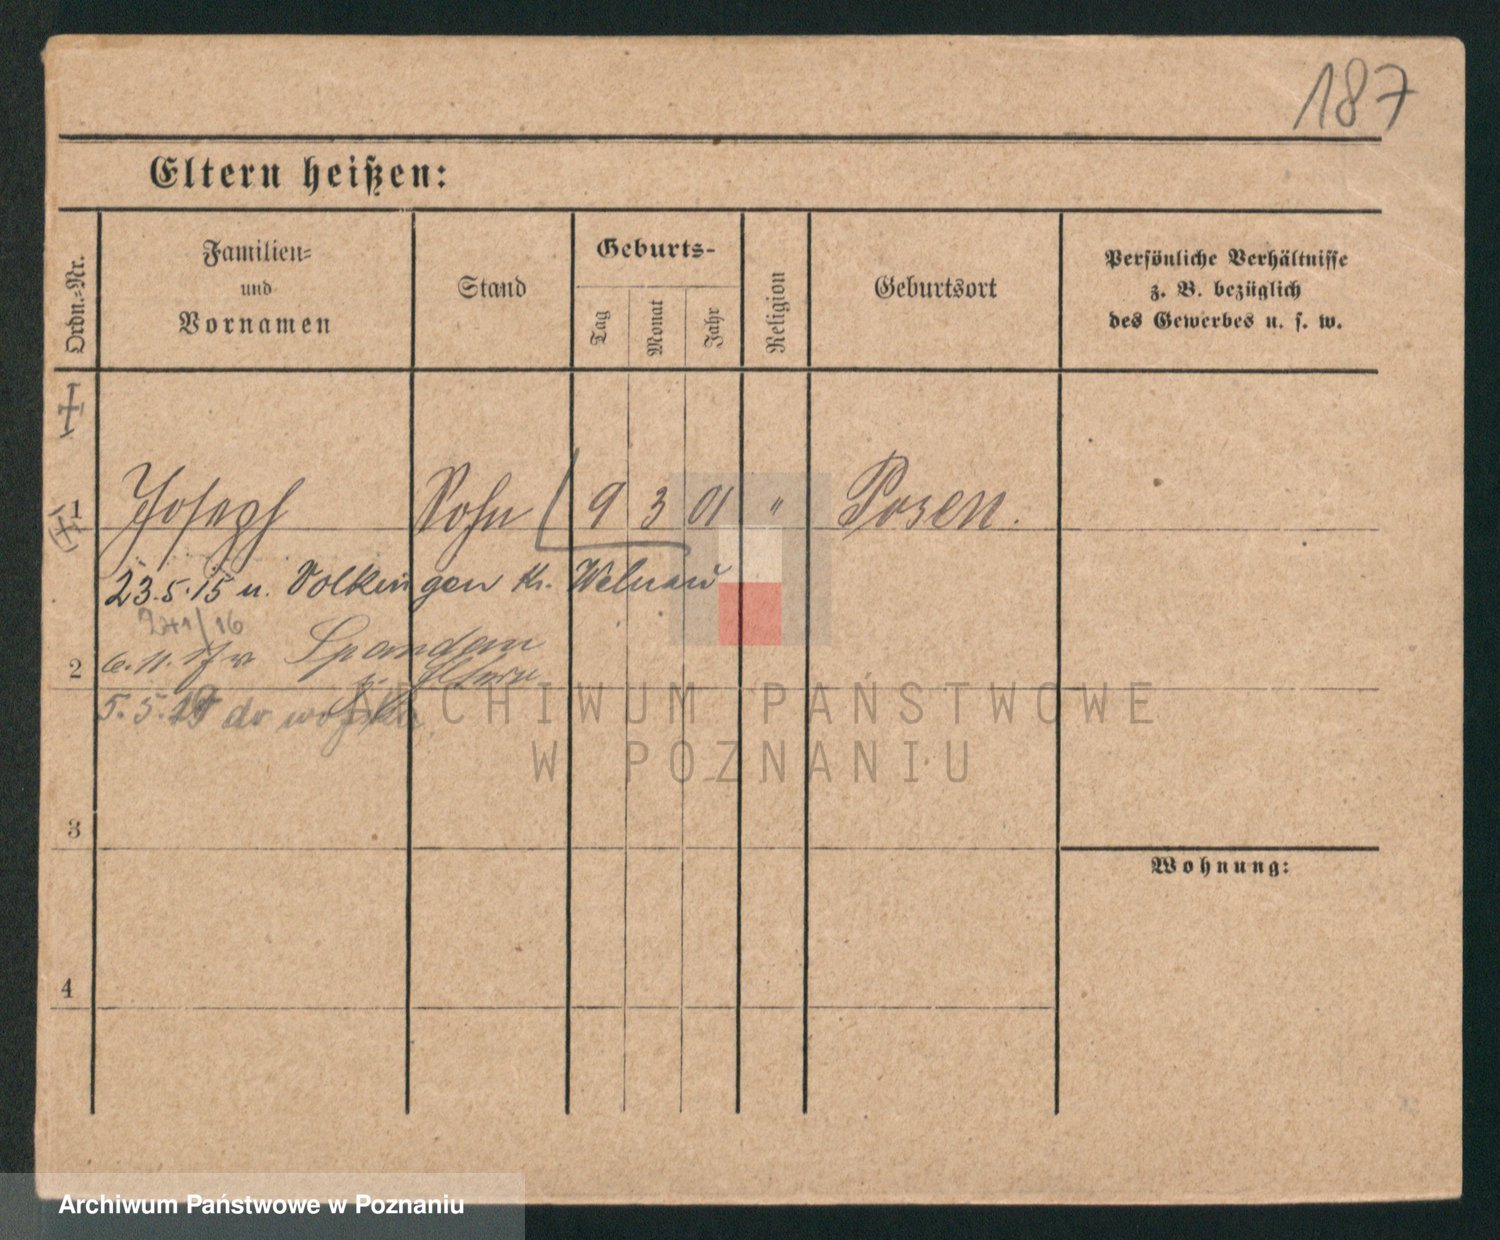 187
Eltern heißen:
Ordn.=Nr.
Familien=
und
Vornamen
Stand
Geburts-
Tag
Monat
Jahr
Religion
Geburtsort
Persönliche Verhältnisse
z. B. bezüglich
des Gewerbes u. s. w.
1 Joseph Sohn 9 3 01 " Posen.
23.5.15 n. Volkingen Kr.
2
6.11. Spandau
z. Eltern
5.5.19 do wojska.
3
Wohnung:
4
ARCHIWUM PAŃSTWOWE
W POZNANIU
Archiwum Państwowe w Poznaniu